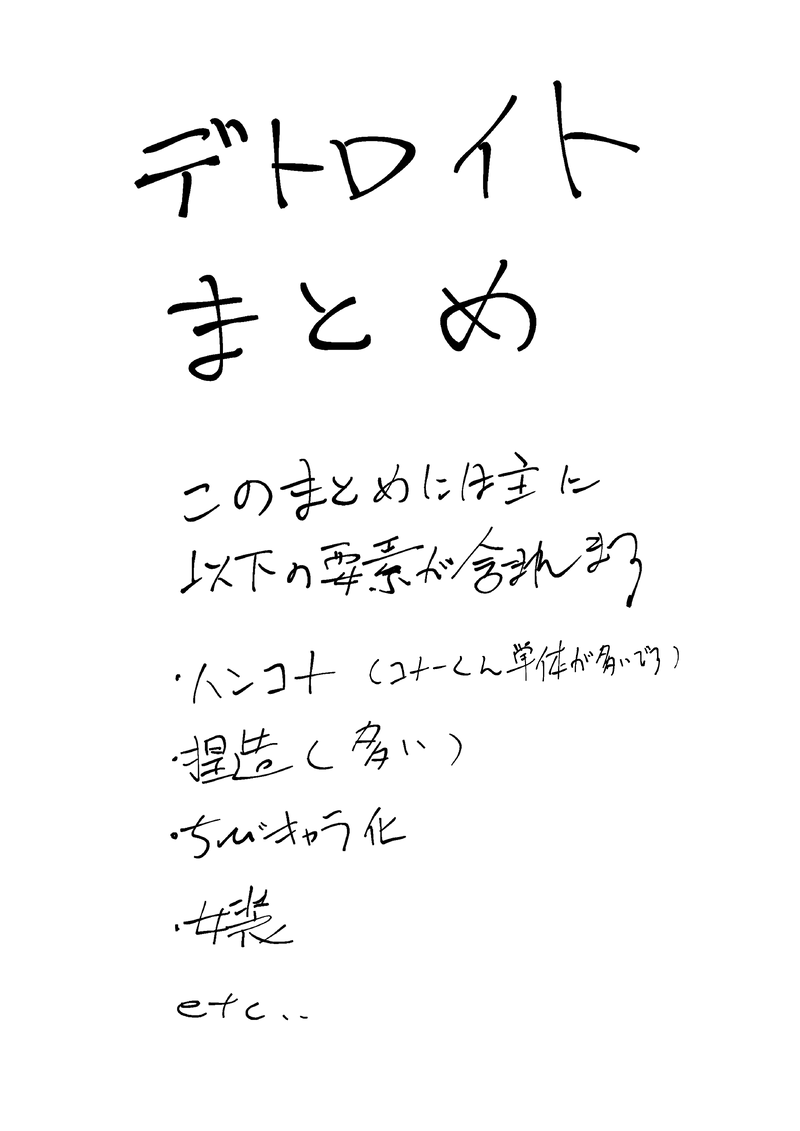 デトロイト
まとめ
このまとめには主に
以下の要素が含まれます
・ハンコナ（コナーくん単体が多いです）
・捏造（多い）
・ちびキャラ化
・女装
etc..